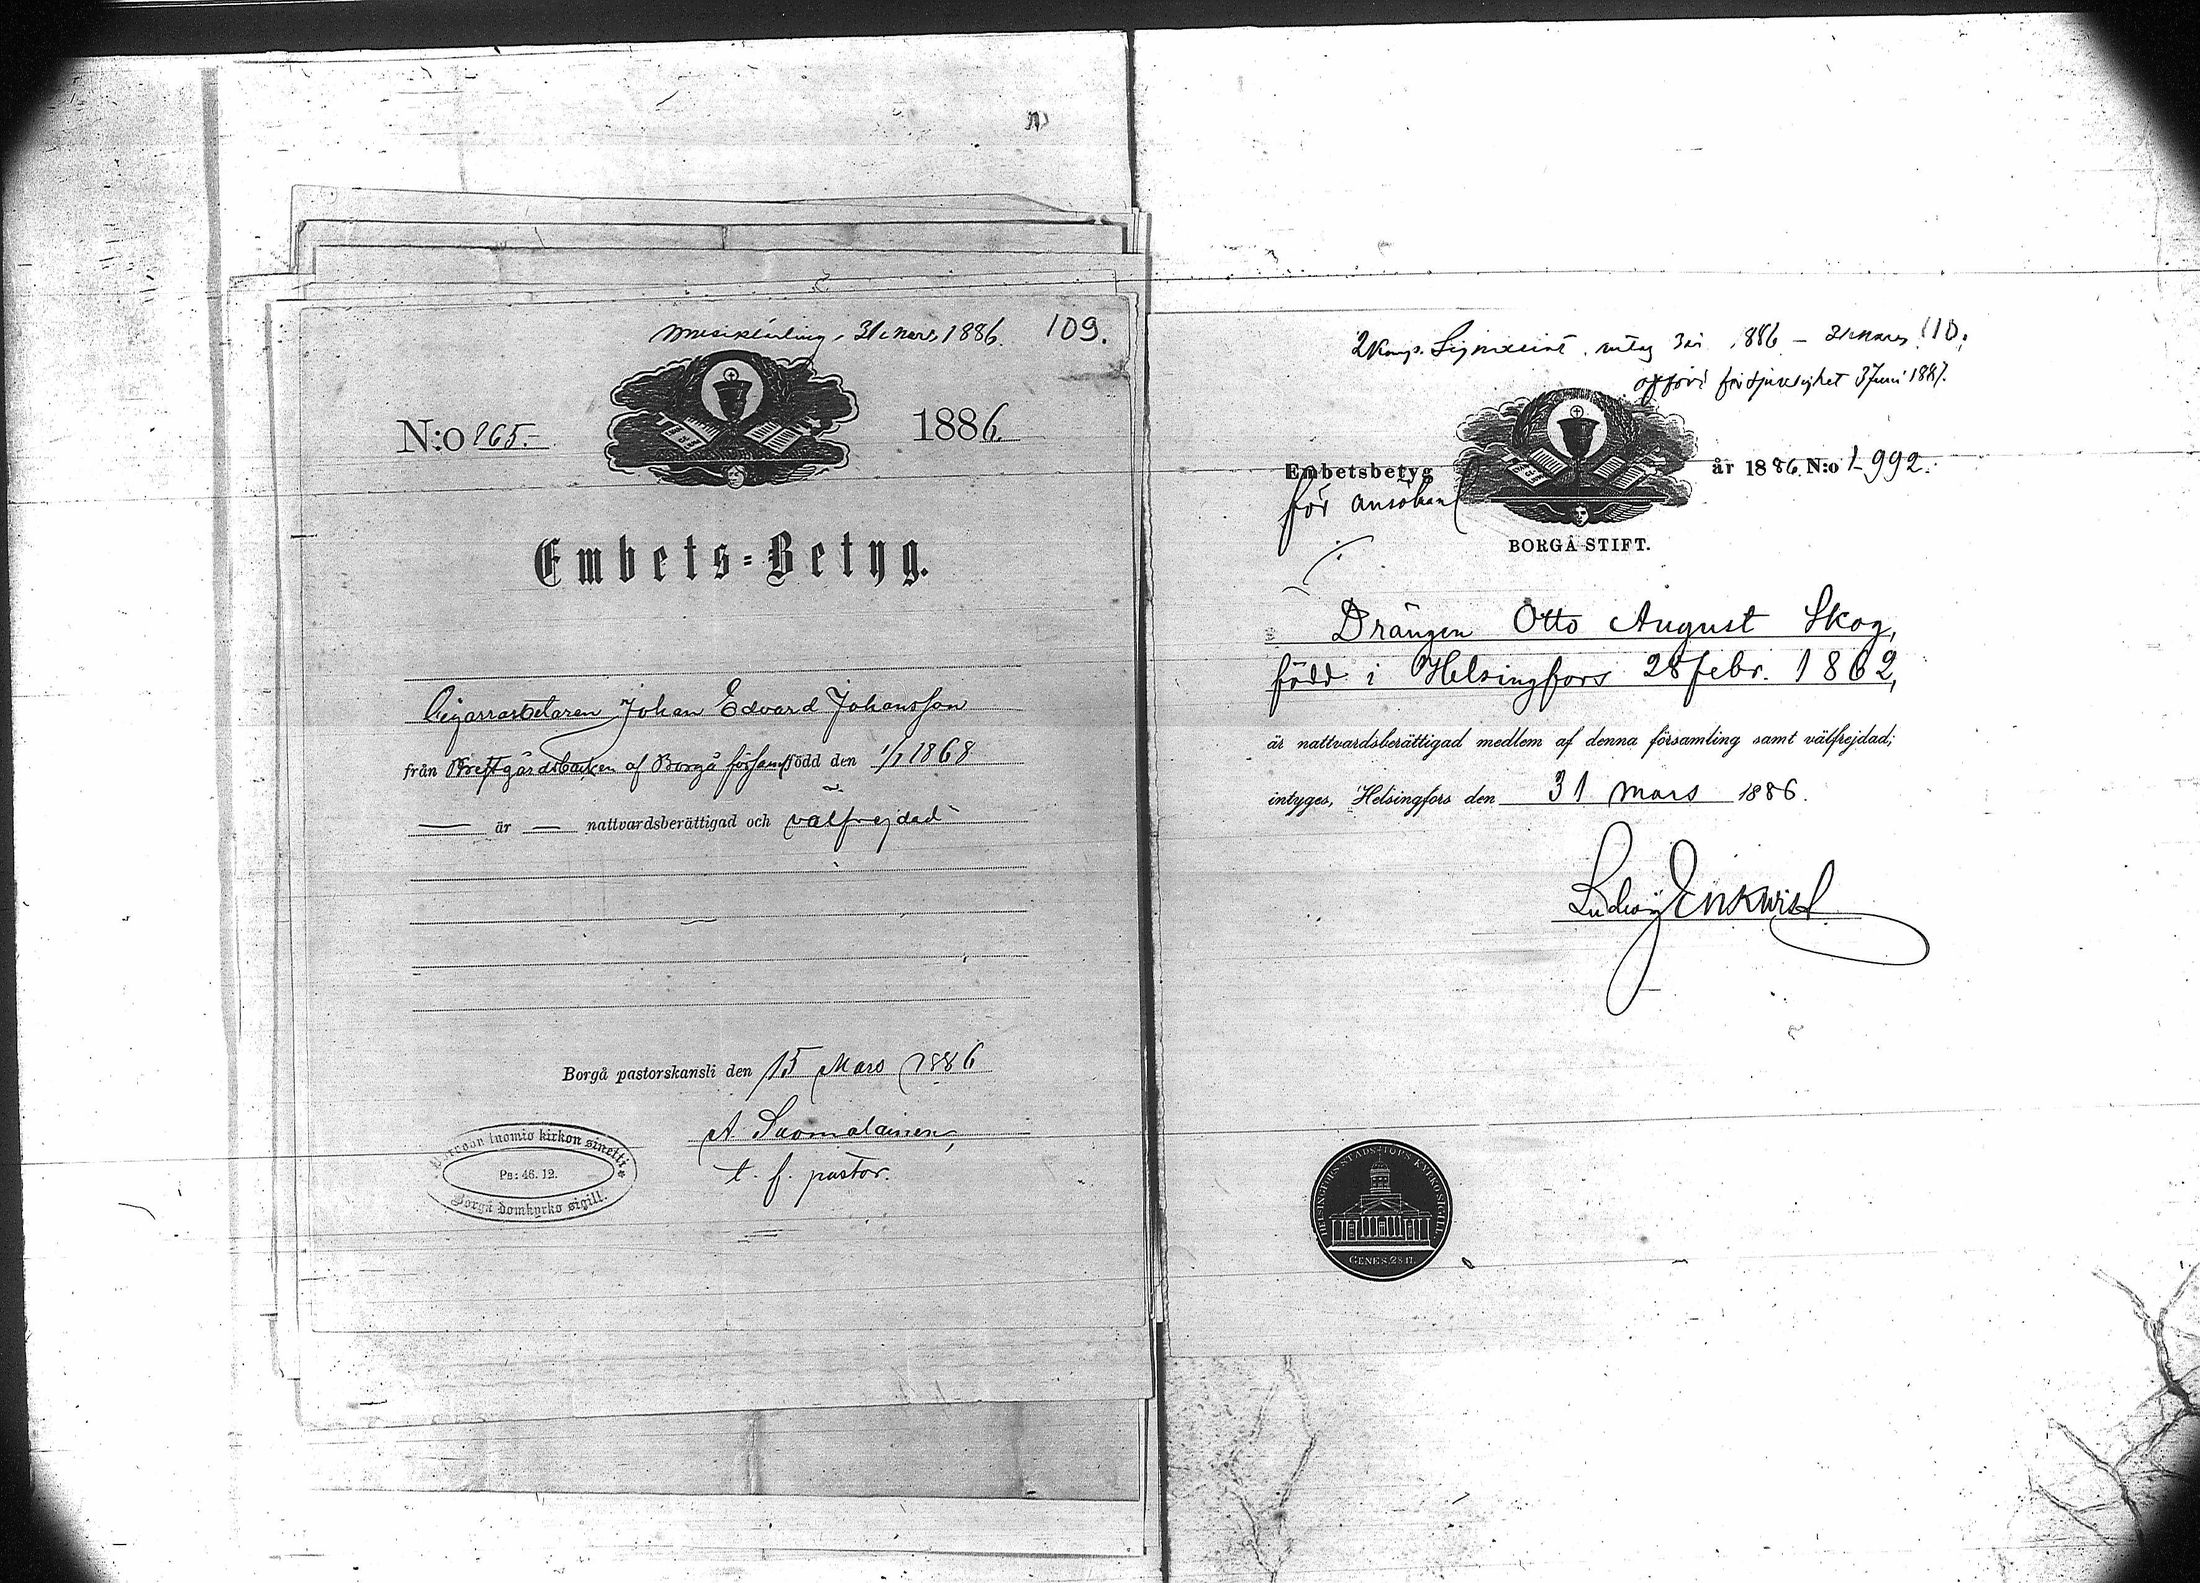 Musiklärling, 31 Mars 1886. 109.
N:o 265.- 1886.
Embets-Betyg.
Cigarrarbetaren Johan Edvard Johansson
från Prestgårdsbacken af Borgå församl född den 1/1 1868
är nattvardsberättigad och välfrejdad
Borgå pastorskansli den 15 Mars 1886
A. Suomalainen,
t. f. pastor.
Porvoon tuomio kirkon sinetti
Ps: 46. 12.
Borgå domkyrko sigill.
2 Komp. 3 1886 – 31 Mars 110.
afförd för sjuklighet 3 Juni 1887.
Embetsbetyg år 1886. N:o 1992.
för ansökan
BORGÅ STIFT.
Drängen Otto August Skog,
född i Helsingfors 28 febr. 1862,
är nattvardsberättigad medlem af denna församling samt välfrejdad;
intyges, Helsingfors den 31 mars 1886.
Ludvig Enkvist
HELSINGFORS STADS KYRKO SIGILL.
GENES. 28 17.